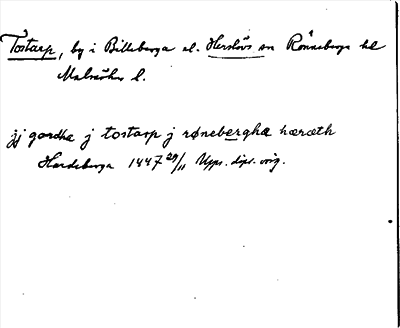 Tostarp, by i Billeberga el. Herslövs sn Rönneberga hd
Malmöhus l.
jj gardha j tostarp j rønebergha hæræth
Hardeberga 1447 29/11 Upps. dipl. orig.